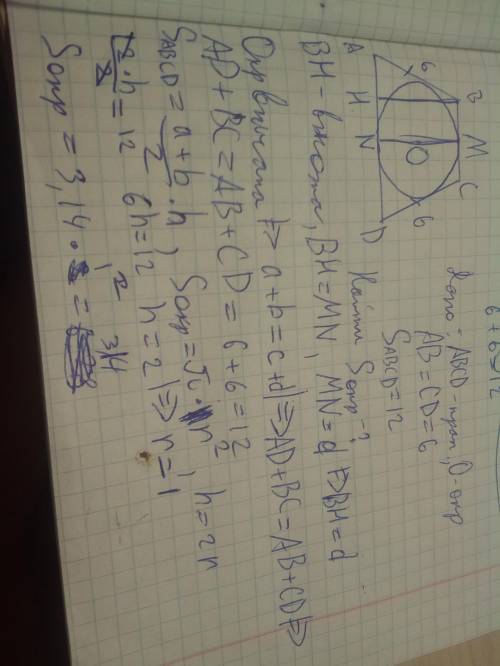 6+6=12
Дано: ABCD-трап, O-окр
AB=CD=6
SABCD=12
Найти Sокр-?
A H N D
B M C
O
6
6
BH-высота, BH=MN, MN=d => BH=d
Окр вписана => a+b=c+d => AD+BC=AB+CD =>
AD+BC=AB+CD=6+6=12
SABCD = a+b/2 · h, Sокр=π·r² h=2r
12/2·h=12 6h=12 h=2 => r=1
Sокр = 3,14 · 1² = 3,14